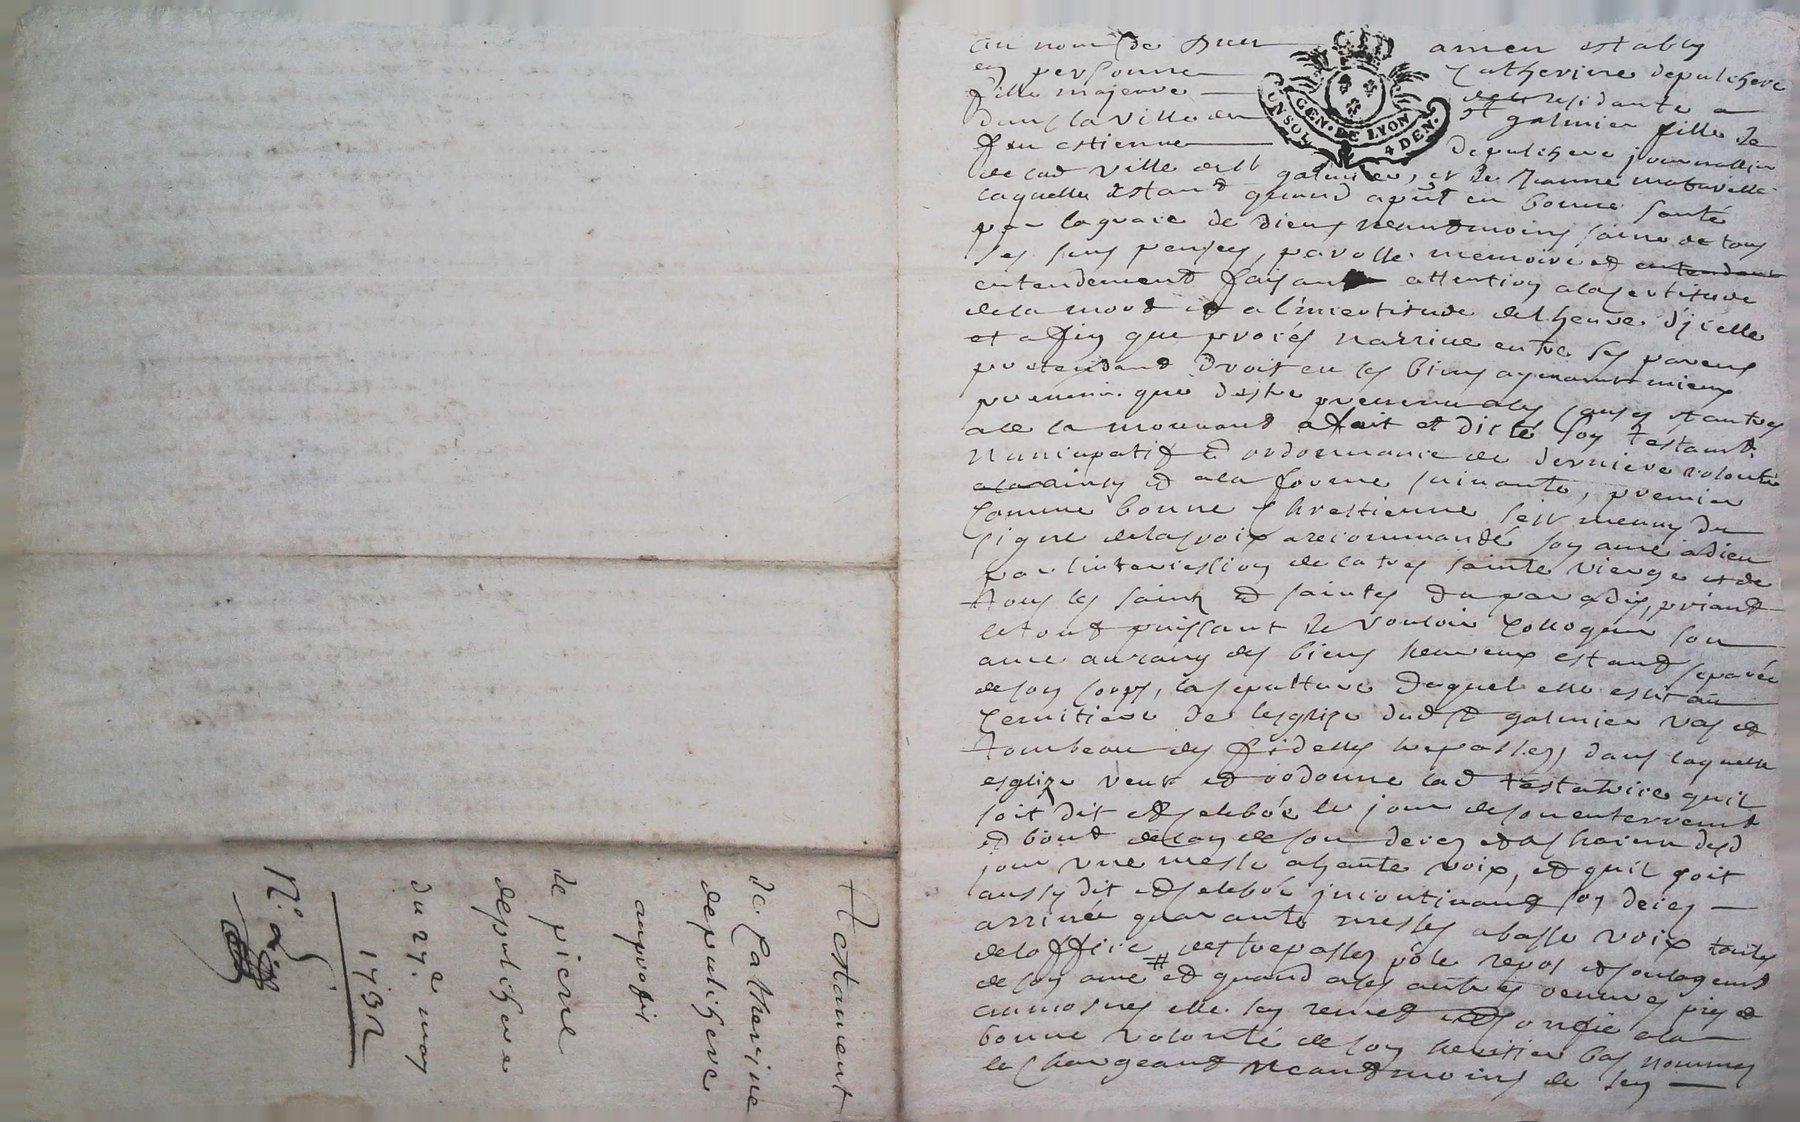 Testament
de Catherine
depulichere
auprofit
de pierre
depulichere
du 27.e may
1732
N.o 
GEN. DE LYON
UN SOL 4 DEN.
au nom de Dieu amen establi
en personne Catherine depulichere
fille majeure residante a
dans la ville de St galmier fille de
feu estienne depulichere journallier
de lad ville de St galmier, et de Jeanne
laquelle estant quand apnt en bonne santé
par la grace de Dieu neantmoins saine de tous
ses sens pensees, parolle, memoire et entendem
entendement faisant attention a la sertitude
de la mort et a l'incertitude de lheure d'jcelle
et affin que procés narrive entre ses parens
pretendant droit en ses biens aymant mieux
prevenir que destre prevenue a ces causes et autres
a ce la mouvant a fait et dicté son testamt
nuncupatif et ordonnance de derniere volonté
a la ainsy et a la forme suivante, premier
comme bonne Chrestienne sest meuny du
signe de la croix a recommandé son ame a dieu
par lintercession de la tres sainte vierge et de
tous les saints et saintes du paradis, priant
le tout puissant de vouloir colloquer son
ame au rang des biens heureux estant separée
de son corps, la sepulture duquel elle eslit au
cemitiere de lesglize dud St galmier vas et
tombeau des fidelles trepasses, dans laquelle
esglize veut et ordonne lad testatrice quil
soit dit et celebré le jour de son enterremt
et bout de lan de son deces et a chacun desd
jour une messe a haute voix, et quil soit
aussy dit et celebré jncontinant son deces
arrivée quarante messes a basse voix toutes
de loffice des trepasses pr le repos et soulagemt
de son ame # et quand a ses autres oeuvres pies et
aumosnes elle sen remet et confie a la
bonne volonté de son heritier bas nommé
le chargeant neantmoins de sen